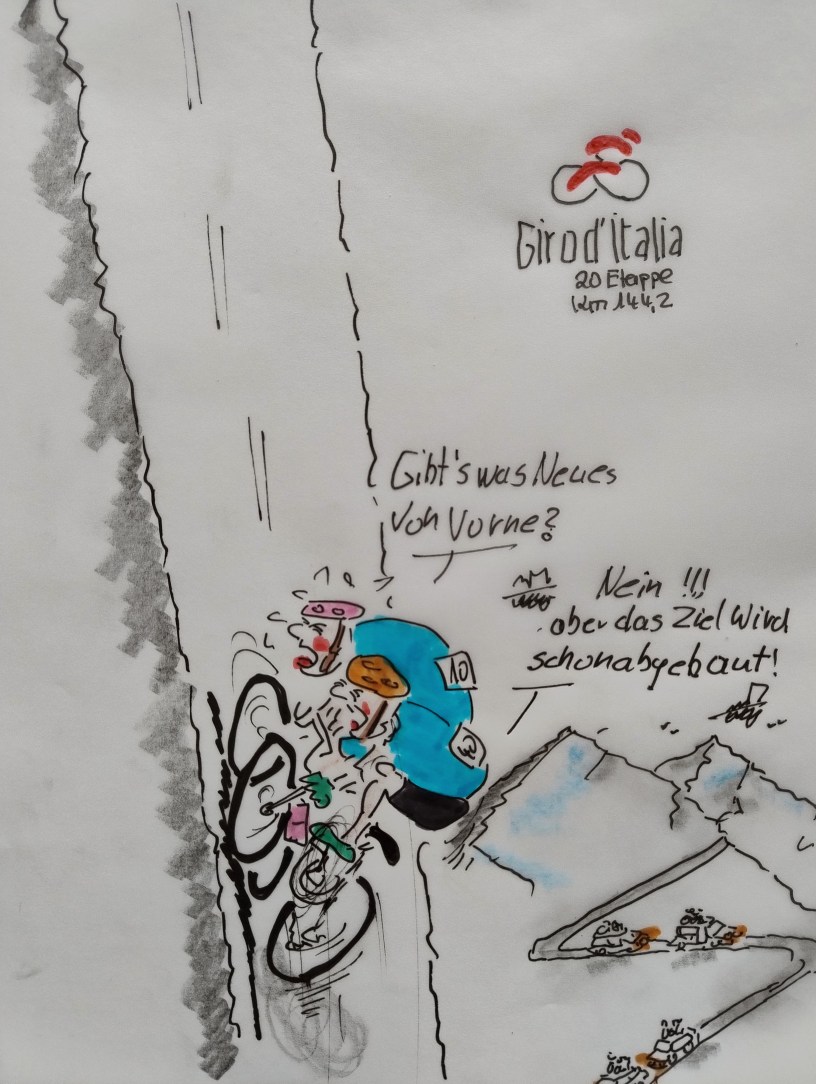 Giro d'Italia
20 Etappe
km 144,2
Gibt's was Neues
von Vorne?
Nein !!!
aber das Ziel wird
schon abgebaut!
10